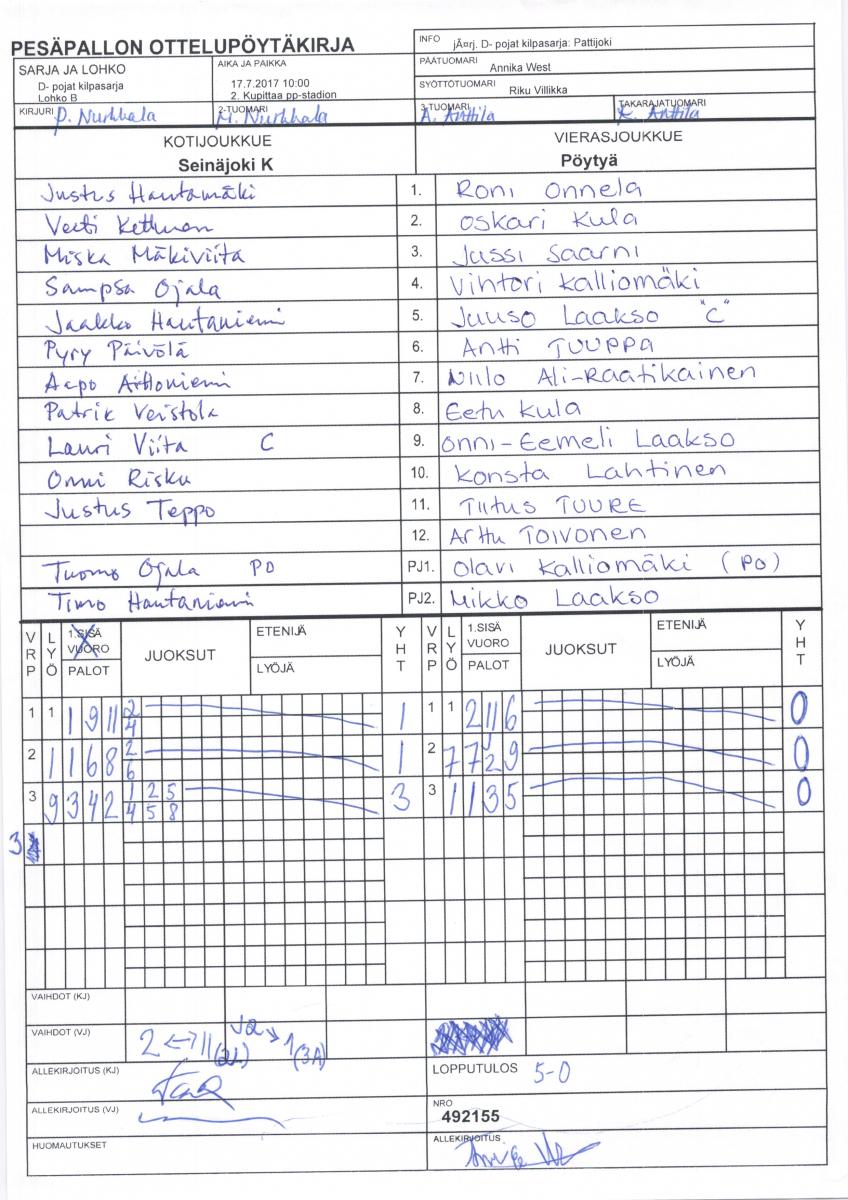 PESÄPALLON OTTELUPÖYTÄKIRJA
INFO jÄ¤rj. D- pojat kilpasarja: Pattijoki
SARJA JA LOHKO
D- pojat kilpasarja
Lohko B
AIKA JA PAIKKA
17.7.2017 10:00
2. Kupittaa pp-stadion
PÄÄTUOMARI Annika West
SYÖTTÖTUOMARI Riku Villikka
KIRJURI P. Nurkkala
2-TUOMARI M. Nurkkala
3-TUOMARI A. Anttila
TAKARAJATUOMARI K. Anttila
KOTIJOUKKUE VIERASJOUKKUE
Seinäjoki K Pöytyä
Justus Hautamäki 1. Roni Onnela
Veeti Kettunen 2. Oskari Kula
Miska Mäkiviita 3. Jussi Saarni
Sampsa Ojala 4. Vihtori Kalliomäki
Jaakko Hautaniemi 5. Juuso Laakso "C"
Pyry Päivölä 6. Antti TUUPPA
Aapo Arttoniemi 7. Niilo Ali-Raatikainen
Patrik Veistola 8. Eetu Kula
Lauri Viita C 9. Onni-Eemeli Laakso
Onni Risku 10. Konsta Lahtinen
Justus Teppo 11. Tiitus TUURE
12. Arttu Toivonen
Tuomo Ojala PO PJ1. Olavi Kalliomäki (PO)
Timo Hautaniemi PJ2. Mikko Laakso
VRP LYÖ 1.SISÄ VUORO PALOT JUOKSUT ETENIJÄ LYÖJÄ YHT VRP LYÖ 1.SISÄ VUORO PALOT JUOKSUT ETENIJÄ LYÖJÄ YHT
1 1 1 9 11 2/4 1 1 1 2 11 6 0
2 1 1 6 8 2/6 1 2 7 7 9 0
3 9 3 4 2 1/4 2/5 5/8 3 3 1 1 3 5 0
3
VAIHDOT (KJ)
VAIHDOT (VJ) 2 <-> 11 (2L) J2 -> 1 (3A)
ALLEKIRJOITUS (KJ) LOPPUTULOS 5-0
ALLEKIRJOITUS (VJ) NRO
492155
HUOMAUTUKSET ALLEKIRJOITUS